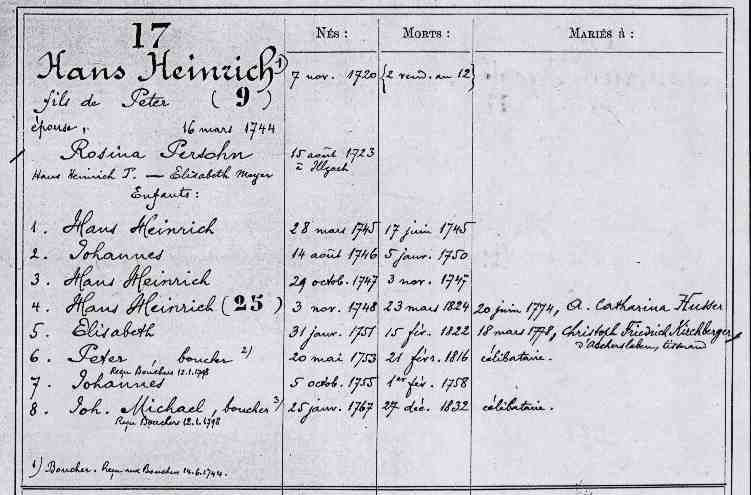 17
Nés :
Morts :
Mariés à :
Hans Heinrich 1)
7 nov. 1720
{2 vend. an 12}
fils de Peter (9)
épouse, 16 mars 1744
Rosina Persohn
15 août 1723
à Illzach
Hans Heinrich P. — Elisabeth Meyer
Enfants :
1. Hans Heinrich 28 mars 1745 17 juin 1745
2. Johannes 14 août 1746 5 janv. 1750
3. Hans Heinrich 29 octob. 1747 3 nov. 1747
4. Hans Heinrich (25) 3 nov. 1748 23 mars 1824 20 juin 1774, A. Catharina Husser
5. Elisabeth 31 janv. 1751 15 fév. 1822 18 mars 1778, Christoph Friedrich Kirchberger
d'Aschersleben, tisserand
6. Peter, boucher 2) 20 mai 1753 21 févr. 1816 célibataire.
Reçu Bouchers 12.1.1798
7. Johannes 5 octob. 1755 1er fév. 1758
8. Joh. Michael, boucher 3) 25 janv. 1767 27 déc. 1832 célibataire.
Reçu Bouchers 12.1.1798
1) Boucher. Reçu aux Bouchers 14.6.1744.